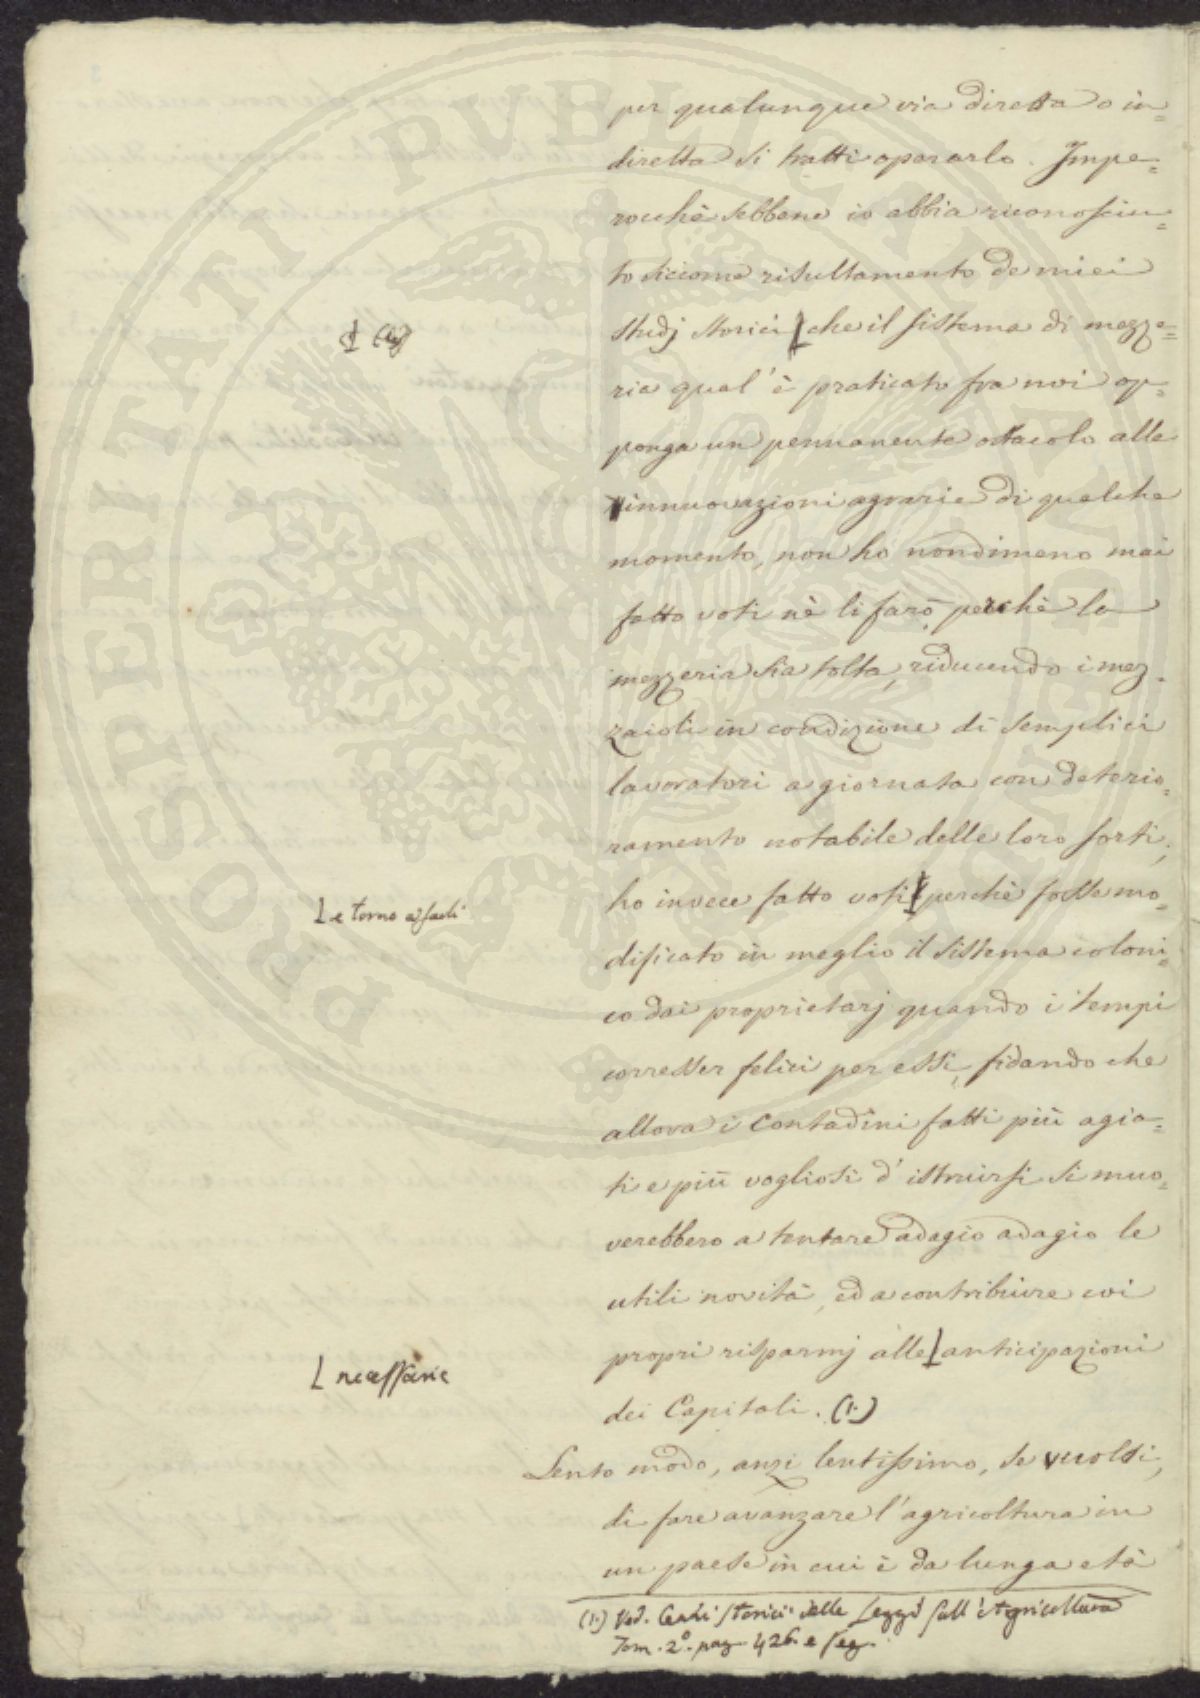 per qualunque via diretta o in=
diretta si tratti operarlo. Impe=
rocchè sebbene io abbia riconosciu=
to siccome risultamento de miei
studj storici che il sistema di mezze=
ria qual'è praticato fra noi op=
ponga un permanente ostacolo alle
innuovazioni agrarie di qualche
momento, non ho nondimeno mai
fatto voti nè li farò perchè la
mezzeria sia tolta, riducendo i mez=
zaioli in condizione di semplici
lavoratori a giornata con deterio=
ramento notabile delle loro sorti;
L e torno a farli
ho invece fatto voti perchè fosse mo=
dificato in meglio il sistema coloni=
co dai proprietarj quando i tempi
corresser felici per essi, fidando che
allora i contadini fatti più agia=
ti e più vogliosi d'istruirsi si muo=
verebbero a tentare adagio adagio le
utili novità, ed a contribuire coi
propri risparmj alle anticipazioni
L necessarie
dei Capitali. (1.)
Lento modo, anzi lentissimo, se vuolsi,
di fare avanzare l'agricoltura in
un paese in cui è da lunga età
(1.) Ved. Cenni storici delle Leggi sull'Agricoltura
Tom. 2º. pag. 426. e seg.
PROSPERITATI PUBLICAE AUGENDAE